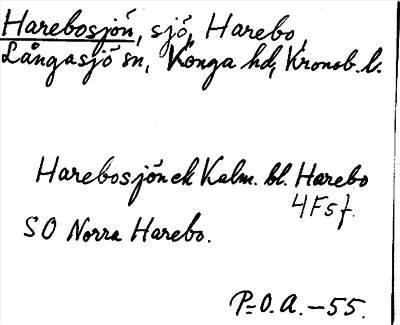 Harebosjön, sjö, Harebo,
Långasjö sn, Konga hd, Kronob. l.
Harebosjön ek Kalm. bl. Harebo
4F5f.
SO Norra Harebo.
P-O. A. -55.